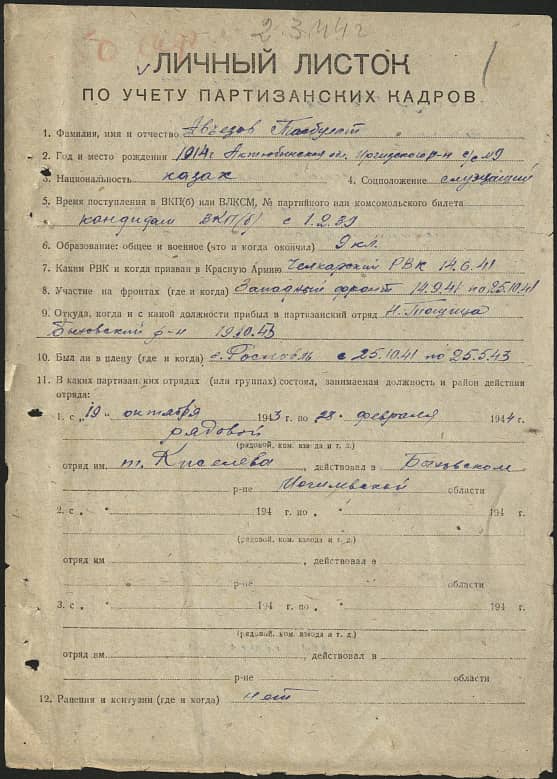 2.3.44 г
ЛИЧНЫЙ ЛИСТОК
ПО УЧЕТУ ПАРТИЗАНСКИХ КАДРОВ
1. Фамилия, имя и отчество Авчезов Тасбулат
2. Год и место рождения 1914 г Актюбинская обл.
3. Национальность казах 4. Соцположение служащий
5. Время поступления в ВКП(б) или ВЛКСМ, № партийного или комсомольского билета
кандидат ВКП(б) с 1.2.39
6. Образование: общее и военное (что и когда окончил) 9 кл.
7. Каким РВК и когда призван в Красную Армию Челкарский РВК 14.6.41
8. Участие на фронтах (где и когда) Западный фронт 14.9.41 по 25.10.41
9. Откуда, когда и с какой должности прибыл в партизанский отряд Н. Тощица
Быховский р-н 19.10.43
10. Был ли в плену (где и когда) г. Рославль с 25.10.41 по 25.5.43
11. В каких партизанских отрядах (или группах) состоял, занимаемая должность и район действия
отряда:
1. с „19" октября 1943 г. по 28 февраля 1944 г.
рядовой
(рядовой, ком. взвода и т. д.)
отряд им. т. Киселева, действовал в Быховском
р-не Могилевской области
2. с „ " 194 г. по „ " 194 г.
(рядовой, ком. взвода и т. д.)
отряд им , действовал в
р-не области
3. с „ " 194 г. по „ " 194 г.
(рядовой, ком. взвода и т. д.)
отряд им. , действовал в
р-не области
12. Ранения и контузии (где и когда) нет